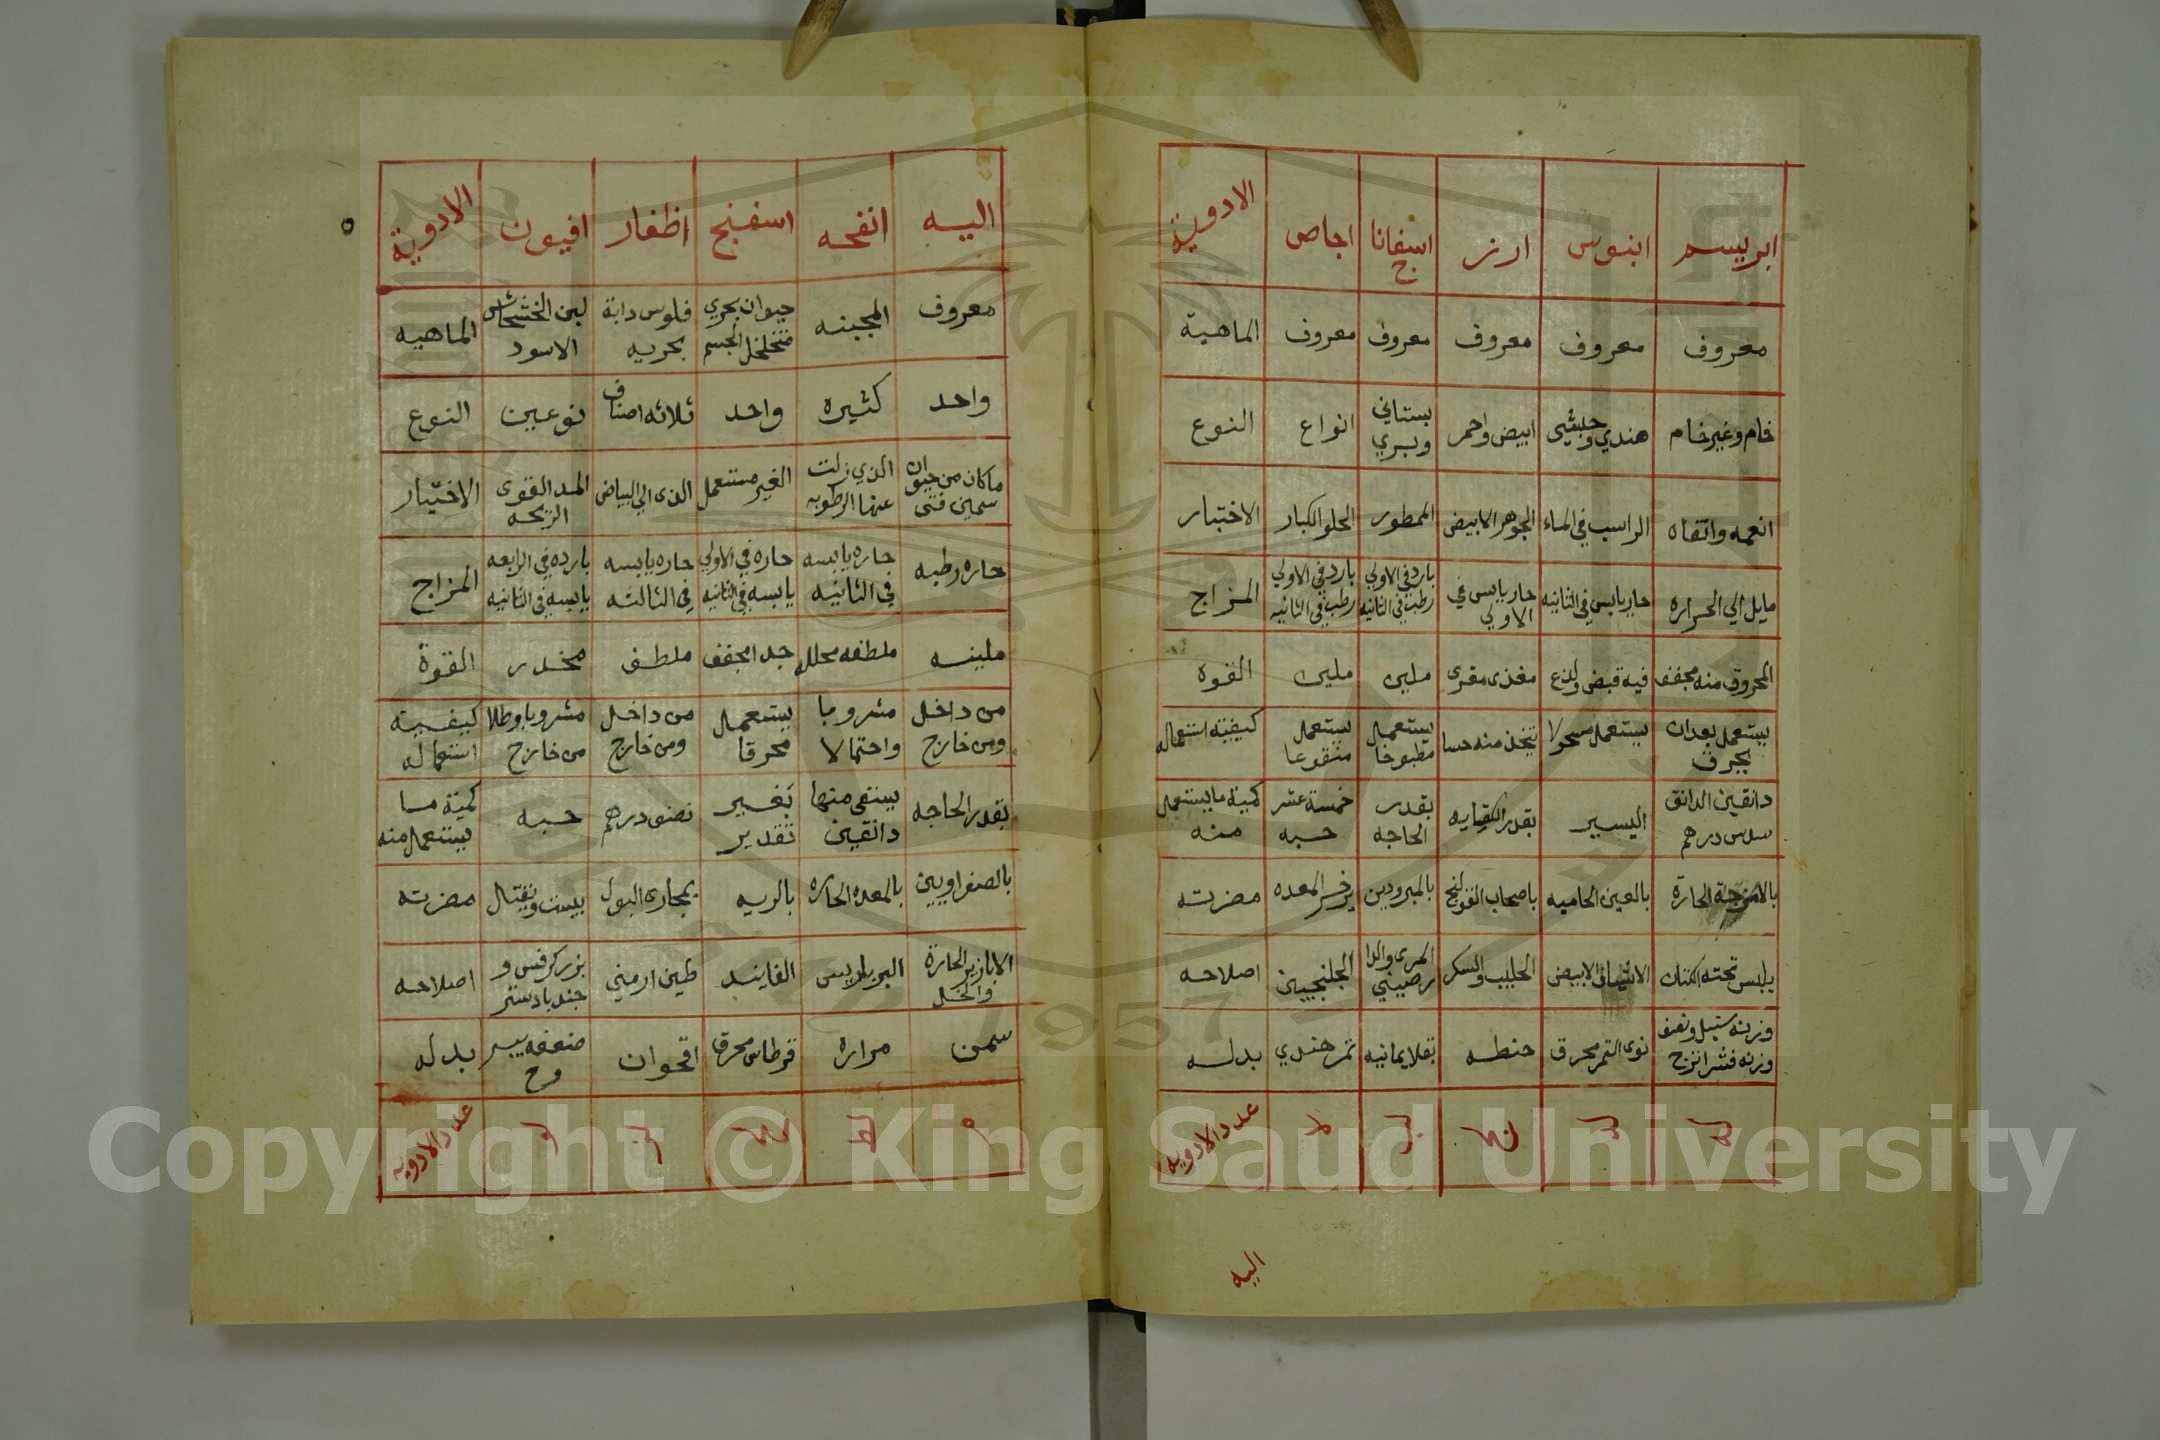 الادوية اجاص اسفانا ارز ابنوس ابريسم
خ
الماهية معروف معروف معروف معروف معروف
النوع انواع بستاني ابيض واحمر هندي وحبشي خام وغير خام
وبري
الاختبار الحلو الكبار الممطور الجوهر الابيض الراسب في الماء انعمه وانقاه
المزاج بارد في الاولي بارد في الاولي حار يابس في حار يابس في الثانيه مايل الي الحراره
رطب في الثانيه رطب في الثانيه الاولي
القوه ملين ملين مغذى مغرى فيه قبض ولذع المحروق منه مجفف
كيفيته استعماله يستعمل يستعمل يتخذ منه حسا يستعمل مسحولا يستعمل بعد ان
منقوعا مطبوخا يحرق
كمية ما يستعمل خمسة عشر بقدر بقدر الكفايه اليسير دانقين الدانق
منه حبه الحاجه سدس درهم
مضرته يرخى المعده بالمبرودين باصحاب القولنج بالعين الحاميه بالامزجة الحارة
اصلاحه الجلنجبين المرى والدا الحليب والسكر الابيض يلبس تحته الكتان
رصيني
بدله تمر هندي بقلا يمانيه حنطه نوى التمر محرق وزنه سنبل ونصف
وزنه قشر اترج
عدد الادويه
اليه
الادوية افيون اظفار اسفنج انفحه اليه
الماهيه لبن الخشخاش فلوس دابة حيوان بحري المجبنه معروف
الاسود بحريه متخلخل الجسم
النوع نوعين ثلاثه اصناف واحد كثيره واحد
الاختيار القوى الذى الي البياض الغير مستعمل الذي زلت ما كان من حيوان
الريحه عنها الرطوبه سمين فتى
المزاج بارده في الرابعه حاره يابسه حاره في الاولي حاره يابسه حاره رطبه
يابسه في الثانيه في الثالثه يابسه في الثانيه في الثانيه
القوة مخدر ملطف جدا مجفف ملطفه محلله ملينه
كيفية مشروبا وطلا من داخل يستعمل مشروبا من داخل
استعماله من خارج ومن خارج محرقا واحتمالا ومن خارج
كمية ما حبه نصف درهم بغير يستفى منها بقدر الحاجه
يستعمل منه تقدير دانقين
مضرته يسبت ويقتال بمجارى البول بالريه بالمعده الحاره بالصفراويين
اصلاحه بزر كرفس و طين ارمني الفانيد البرباريس الابازير الحارة
جندبادستر والخل
بدله ضعفه اقحوان قرطاس محرق مراره سمن
عدد الادويه
Copyright © King Saud University
1957